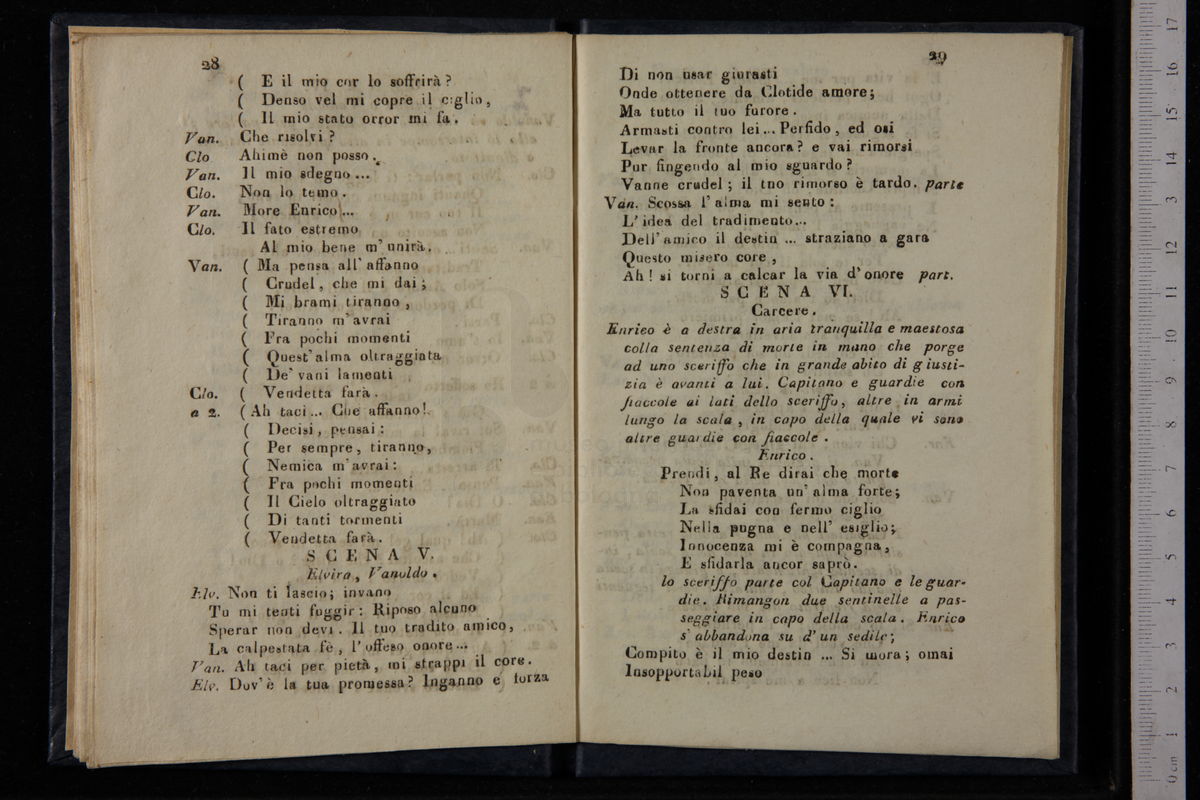 28
( E il mio cor lo soffrirà?
( Denso vel mi copre il ciglio,
( Il mio stato orror mi fa.
Van. Che risolvi?
Clo Ahimè non posso.
Van. Il mio sdegno...
Clo. Non lo temo.
Van. More Enrico...
Clo. Il fato estremo
Al mio bene m'unirà.
Van. ( Ma pensa all'affanno
( Crudel, che mi dai;
( Mi brami tiranno,
( Tiranno m'avrai
( Fra pochi momenti
( Quest'alma oltraggiata
( De' vani lamenti
Clo. ( Vendetta farà.
a 2. ( Ah taci... Che affanno!
( Decisi, pensai:
( Per sempre, tiranno,
( Nemica m'avrai:
( Fra pochi momenti
( Il Cielo oltraggiato
( Di tanti tormenti
( Vendetta farà.
SCENA V.
Elvira, Vanoldo.
Elv. Non ti lascio; invano
Tu mi tenti fuggir: Riposo alcuno
Sperar non devi. Il tuo tradito amico,
La calpestata fè, l'offeso onore...
Van. Ah taci per pietà, mi strappi il core.
Elv. Dov'è la tua promessa? Inganno e forza
29
Di non usar giurasti
Onde ottenere da Clotide amore;
Ma tutto il tuo furore.
Armasti contro lei... Perfido, ed osi
Levar la fronte ancora? e vai rimorsi
Pur fingendo al mio sguardo?
Vanne crudel; il tno rimorso è tardo. parte
Van. Scossa l'alma mi sento:
L'idea del tradimento...
Dell'amico il destin ... straziano a gara
Questo misero core,
Ah! si torni a calcar la via d'onore part.
SCENA VI.
Carcere.
Enrico è a destra in aria tranquilla e maestosa
colla sentenza di morte in mano che porge
ad uno sceriffo che in grande abito di giusti-
zia è avanti a lui. Capitano e guardie con
fiaccole ai lati dello sceriffo, altre in armi
lungo la scala, in capo della quale vi sono
altre guardie con fiaccole.
Enrico.
Prendi, al Re dirai che morte
Non paventa un'alma forte;
La sfidai con fermo ciglio
Nella pugna e nell' esiglio;
Innocenza mi è compagna,
E sfidarla ancor saprò.
lo sceriffo parte col Capitano e le guar-
die. Rimangon due sentinelle a pas-
seggiare in capo della scala. Enrico
s'abbandona su d'un sedile;
Compito è il mio destin ... Si mora; omai
Insopportabil peso
17
16
15
14
3
12
11
10
9
8
7
6
5
4
3
2
1
0 cm